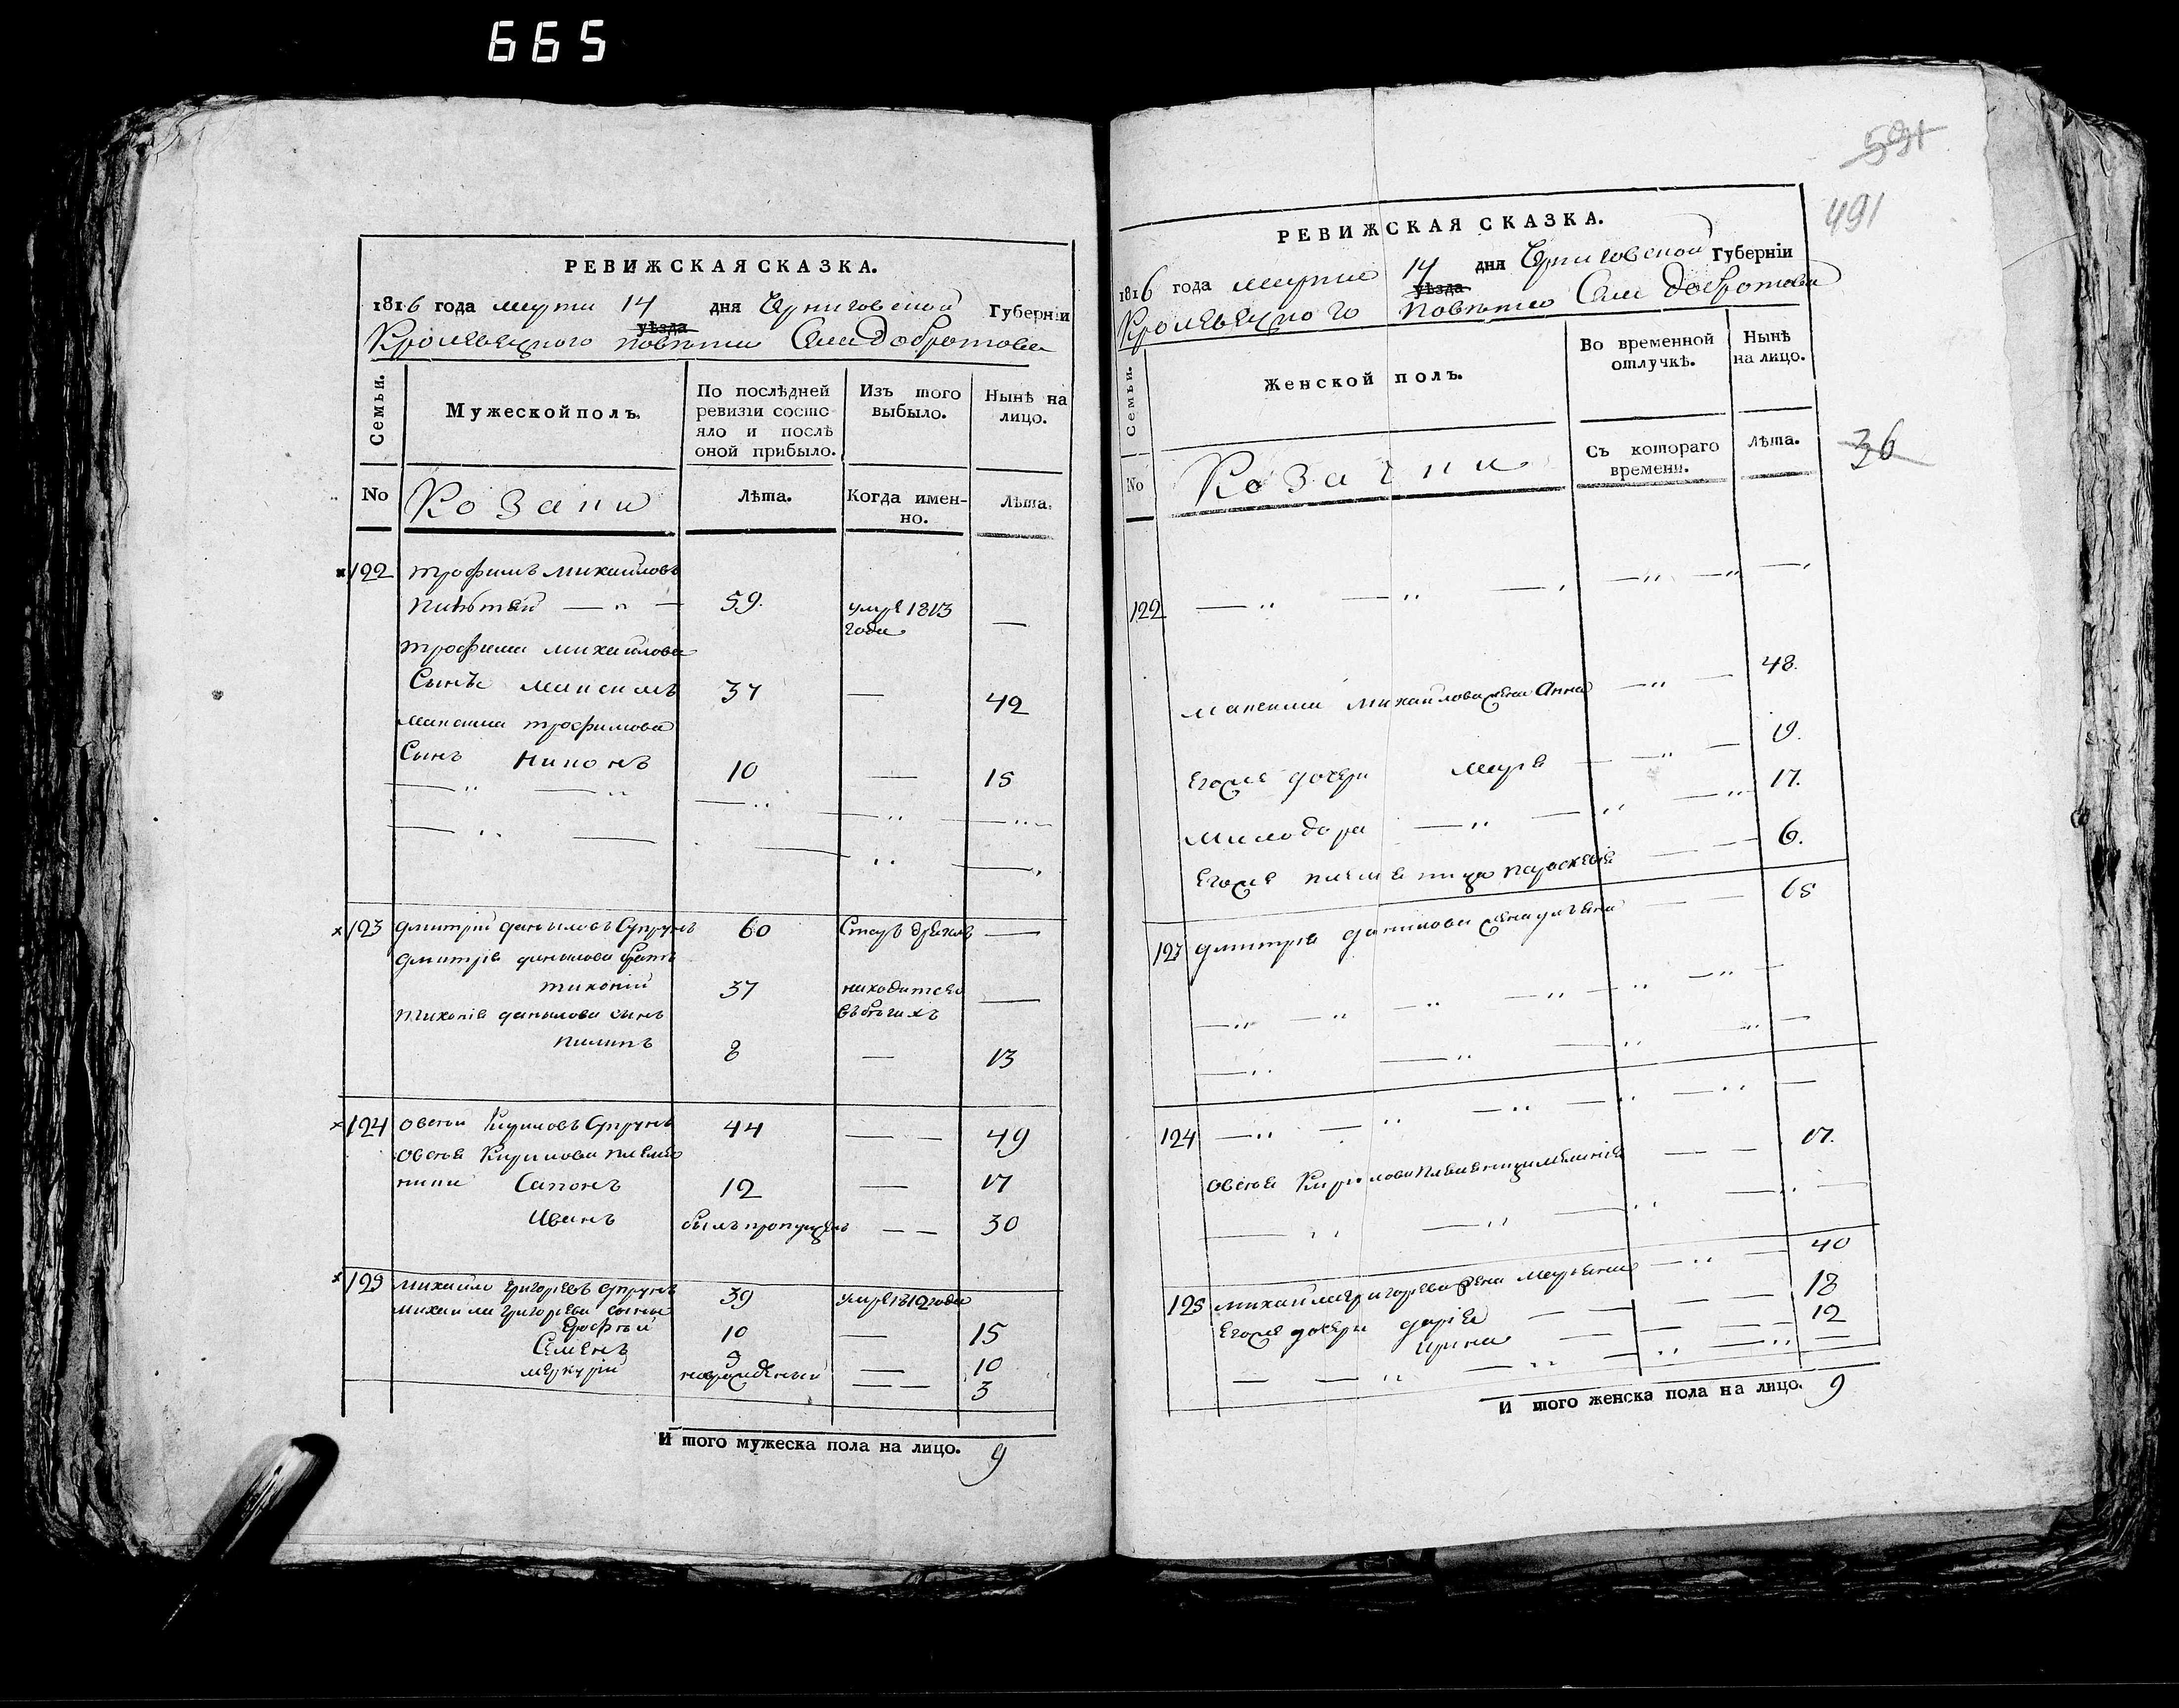 665
РЕВИЖСКАЯ СКАЗКА.
1816 года марта 14 дня Черниговской Губерніи
Кролевецкого уѣзда повѣта Села Добротова
Семьи.
Мужеской полъ.
По послѣдней ревизіи состояло и послѣ оной прибыло.
Изъ того выбыло.
Нынѣ на лицо.
No
Козаки
Лѣта.
Когда именно.
Лѣта.
122 Трофимъ Михайловъ
59. умре 1813
года —
Трофима Михайлова
Сынъ Максимъ 37 — 42
Максима Трофимова
Сынъ Никонъ 10 — 15
123 Дмитрій Даниловъ Супрунъ 60 Старъ —
Дмитрія Данилова братъ
Тихоній 37 находится
въ бѣгахъ —
Тихонія Данилова сынъ
Пилипъ 8 — 13
124 Овсей Кириловъ Супрунъ 44 — — 49
Овсея Кирилова племян
ники Сапонъ 12 — 17
Иванъ былъ пропущенъ — — 30
125 Михайло Григорьевъ Супрунъ 39 умре 1812 года
Михайла Григорьева сыны
10 — 15
Семенъ 5 — 10
Меркурій новорожденный — — 3
И того мужеска пола на лицо. 9
591
491
РЕВИЖСКАЯ СКАЗКА.
1816 года марта 14 дня Черниговской Губерніи
Кролевецкого уѣзда повѣта Села Добротова
Семьи.
Женской полъ.
Во временной отлучкѣ.
Нынѣ на лицо.
No
Козачки
Съ котораго времени.
лѣта.
36
122
Максима Михайлова жена Анна — 48.
Егоже дочери — 19.
Милодора — 17.
Егоже племяница Параскевія — 6.
123 Дмитрія Данилова жена Ульяна — — 65
124
Овсея Кирилова племяница Меланія — — 17.
125 Михайла Григорьева жена Марьяна — 40
Егоже дочери Дарія — — 18
Ирина — — 12
И того женска пола на лицо. 9